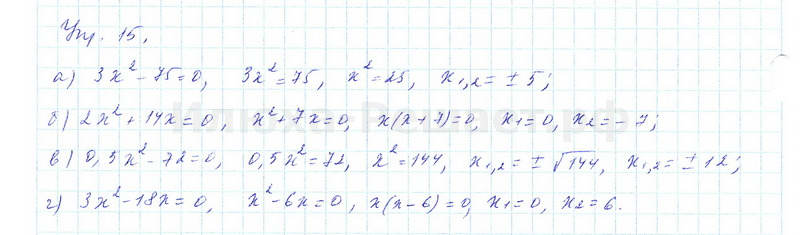 Упр. 15.
а) 3x² - 75 = 0, 3x² = 75, x² = 25, x₁,₂ = ± 5;
б) 2x² + 14x = 0, x² + 7x = 0, x(x + 7) = 0, x₁ = 0, x₂ = - 7;
в) 0,5x² - 72 = 0, 0,5x² = 72, x² = 144, x₁,₂ = ± √144, x₁,₂ = ± 12;
г) 3x² - 18x = 0, x² - 6x = 0, x(x - 6) = 0, x₁ = 0, x₂ = 6.
Илюха-Решает.рф